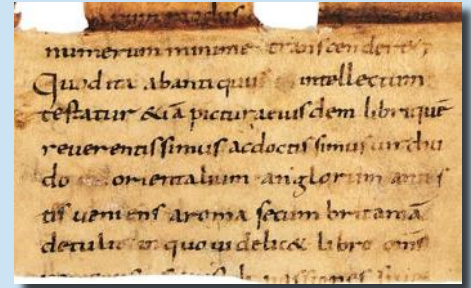 numerum minime transcenderet;
Quod ita abantiquis intellectum
testatur &iā picturaeiusdem libriquē
reuerentissimus acdoctissimus uir
do orientalium anglorum antis
tis ueniens aroma secum britaniā
detulit in quo uidelic& libro
passiones